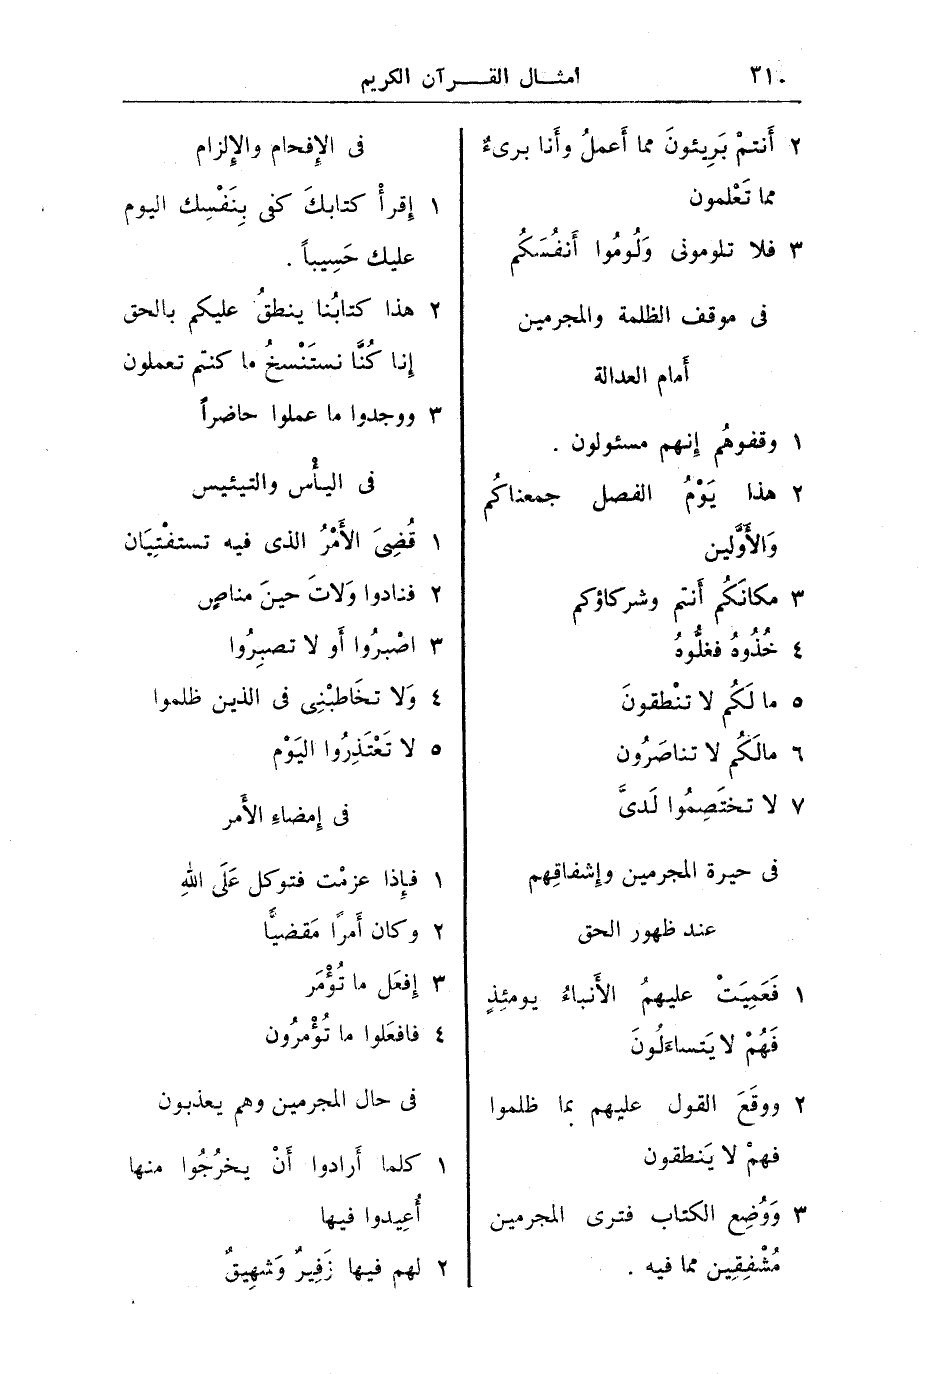 ٣١٠
أمثـال القـــرآن الكريم
٢ أَنتمْ بَرِيئونَ مما أَعملُ وأَنا برىءٌ
مما تَعْلمون
٣ فلا تلومونى وَلُومُوا أَنفُسَكُم
فى موقف الظلمة والمجرمين
أَمام العدالة
١ وقفوهُم إِنهم مسئولون .
٢ هذا يَوْمُ الفصل جمعناكُم
وَالأَوَّلين
٣ مكانَكُم أَنتم وشركاؤكم
٤ خُذُوهُ فغلُّوهُ
٥ ما لَكُم لا تنْطقونَ
٦ مالَكُم لا تناصَرُون
٧ لا تختَصِمُوا لَدىَّ
فى حيرة المجرمين وإِشفاقِهم
عند ظهور الحق
١ فَعَمِيَتْ عليهمُ الأَنباءُ يومئِذٍ
فَهُمْ لا يَتساءَلُونَ
٢ ووقَعَ القول عليهم بما ظلموا
فهمْ لا يَنطقون
٣ وَوُضِع الكتاب فترى المجرمين
مُشْفِقِين مما فيه .
فى الإِفحام والإِلزام
١ إِقرأْ كتابكَ كفى بِنَفْسِك اليوم
عليك حَسِيباً .
٢ هذا كتابُنا ينطقُ عليكم بالحق
إِنا كُنَّا نستَنْسخُ ما كنتم تعملون
٣ ووجدوا ما عملوا حاضراً
فى اليأْس والتيئيس
١ قُضِىَ الأَمْرُ الذى فيه تستفْتِيَان
٢ فنادوا وَلاتَ حينَ مناصٍ
٣ اصْبرُوا أَو لا تصبِرُوا
٤ وَلا تخَاطبْنِى فى الذين ظلموا
٥ لا تَعْتَذِرُوا اليَوْم
فى إِمضاءِ الأَمر
١ فإِذا عزمْت فتوكل عَلَى اللهِ
٢ وكان أَمرًا مَقضيًّا
٣ إِفعَل ما تُؤْمَر
٤ فافعَلوا ما تُؤْمرُون
فى حال المجرمين وهم يعذبون
١ كلما أَرادوا أَنْ يخرُجُوا منها
أُعِيدوا فيها
٢ لهم فيها زَفِيرٌ وَشهِيقٌ